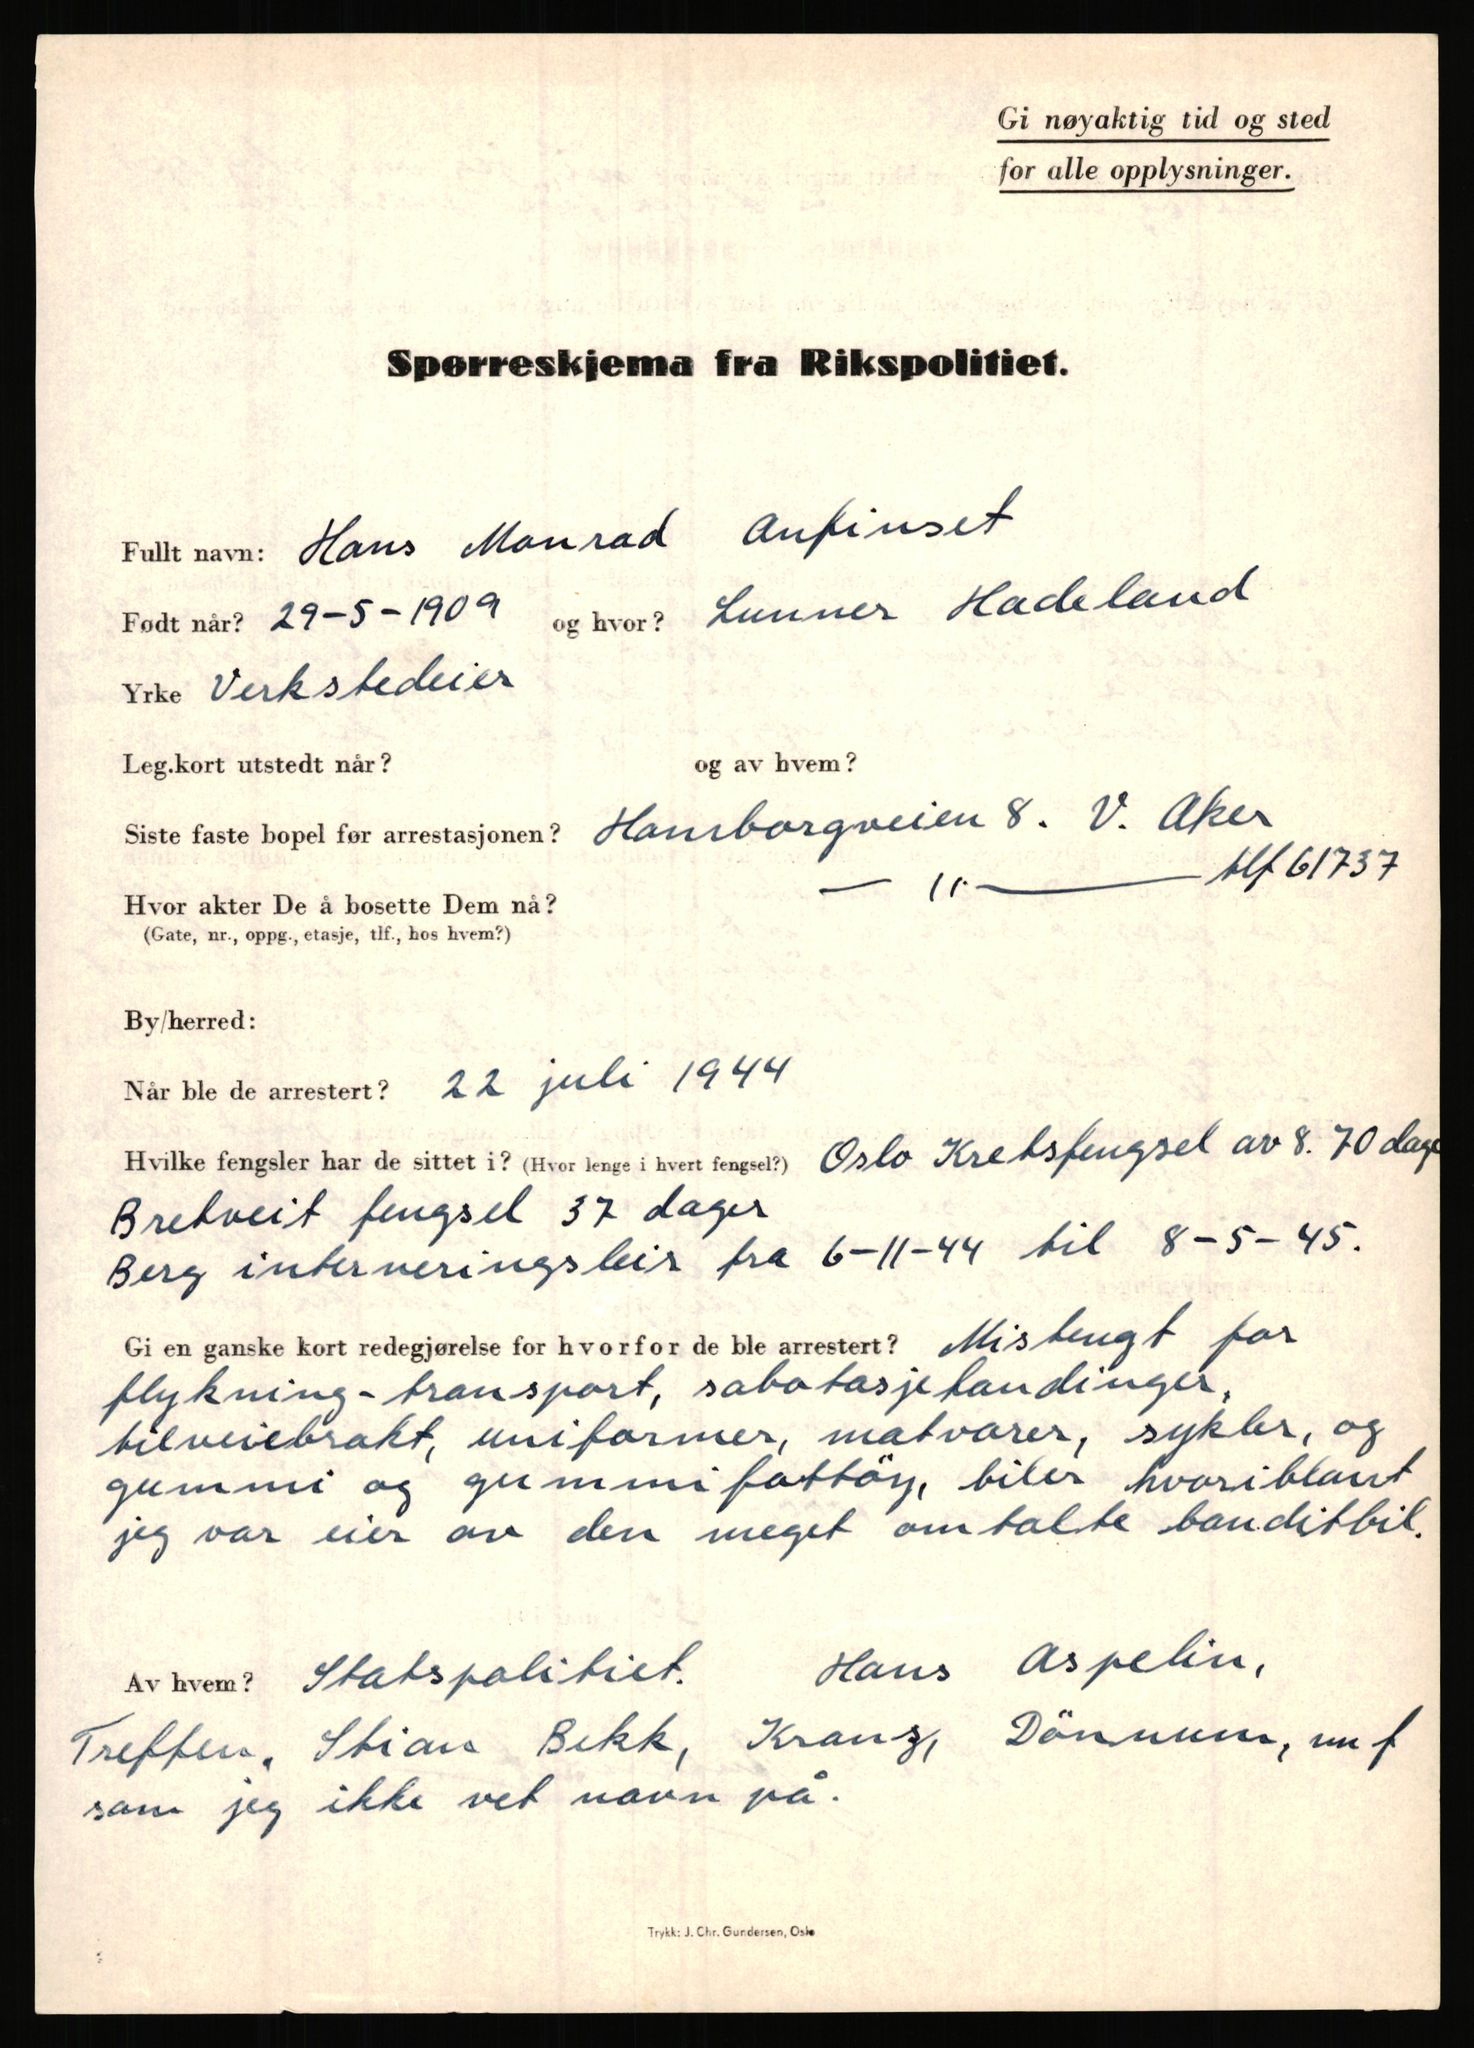 Gi nøyaktig tid og sted
for alle opplysninger.
Spørreskjema fra Rikspolitiet.
Fullt navn: Hans Monrad Anfinset
Født når? 29-5-1909 og hvor? Lunner Hadeland
Yrke Verkstedeier
Leg.kort utstedt når? og av hvem?
Siste faste bopel før arrestasjonen? Hansborgveien 8. V. Aker
Hvor akter De å bosette Dem nå? — 11. — tlf 61737
(Gate, nr., oppg., etasje, tlf., hos hvem?)
By/herred:
Når ble de arrestert? 22 juli 1944
Hvilke fengsler har de sittet i? (Hvor lenge i hvert fengsel?) Oslo Kretsfengsel av 8. 70 dage
Bretveit fengsel 37 dager
Berg interneringsleir fra 6-11-44 til 8-5-45.
Gi en ganske kort redegjørelse for hvorfor de ble arrestert? Mistengt for
flykning-transport, sabotasjehandinger,
tilveiebrakt, uniformer, matvarer, sykler, og
gummi og gummifottöy, biler hvoriblant
jeg var eier av den meget omtalte banditbil.
Av hvem? Statspolitiet. Hans Aspelin,
Treffen, Stian Bekk, Kranz, Dönnum, m f
som jeg ikke vet navn på.
Trykk: J. Chr. Gundersen, Oslo